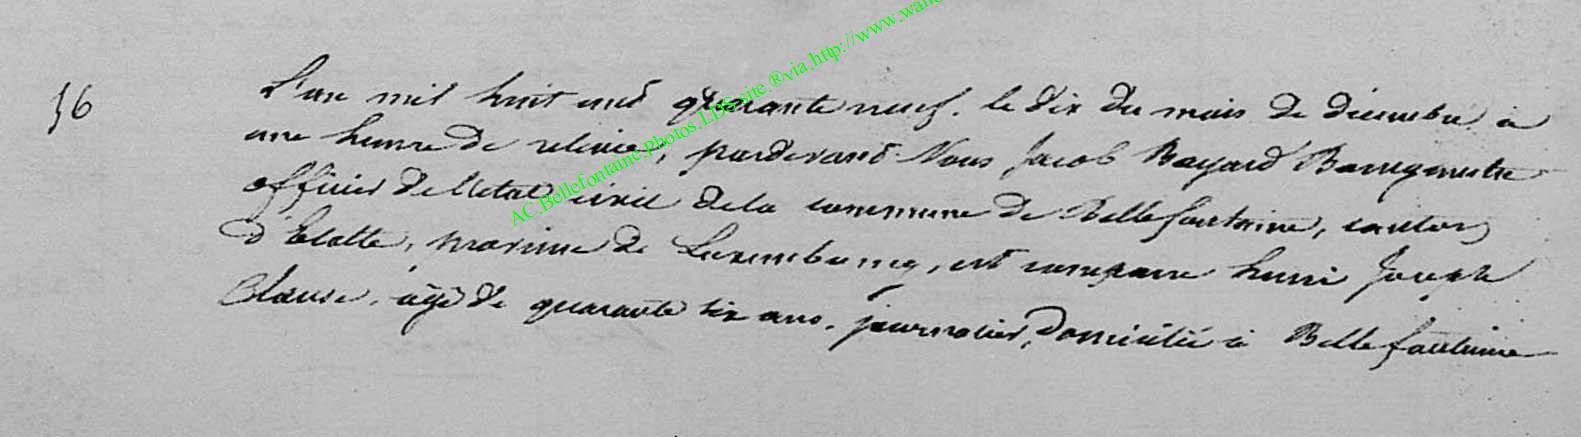 56
L'an mil huit cent quarante neuf. le dix du mois de décembre à
une heure de relevée, pardevant Nous Jacob Bayard Bourgmestre
officier de l'état civil de la commune de Bellefontaine, canton
d'Etalle, province de Luxembourg, est comparu henri Joseph
Clause, âgé de quarante six ans, journalier, domicilié à Bellefontaine
AC.Bellefontaine.photos.LDS.site.®via.http://www.wan